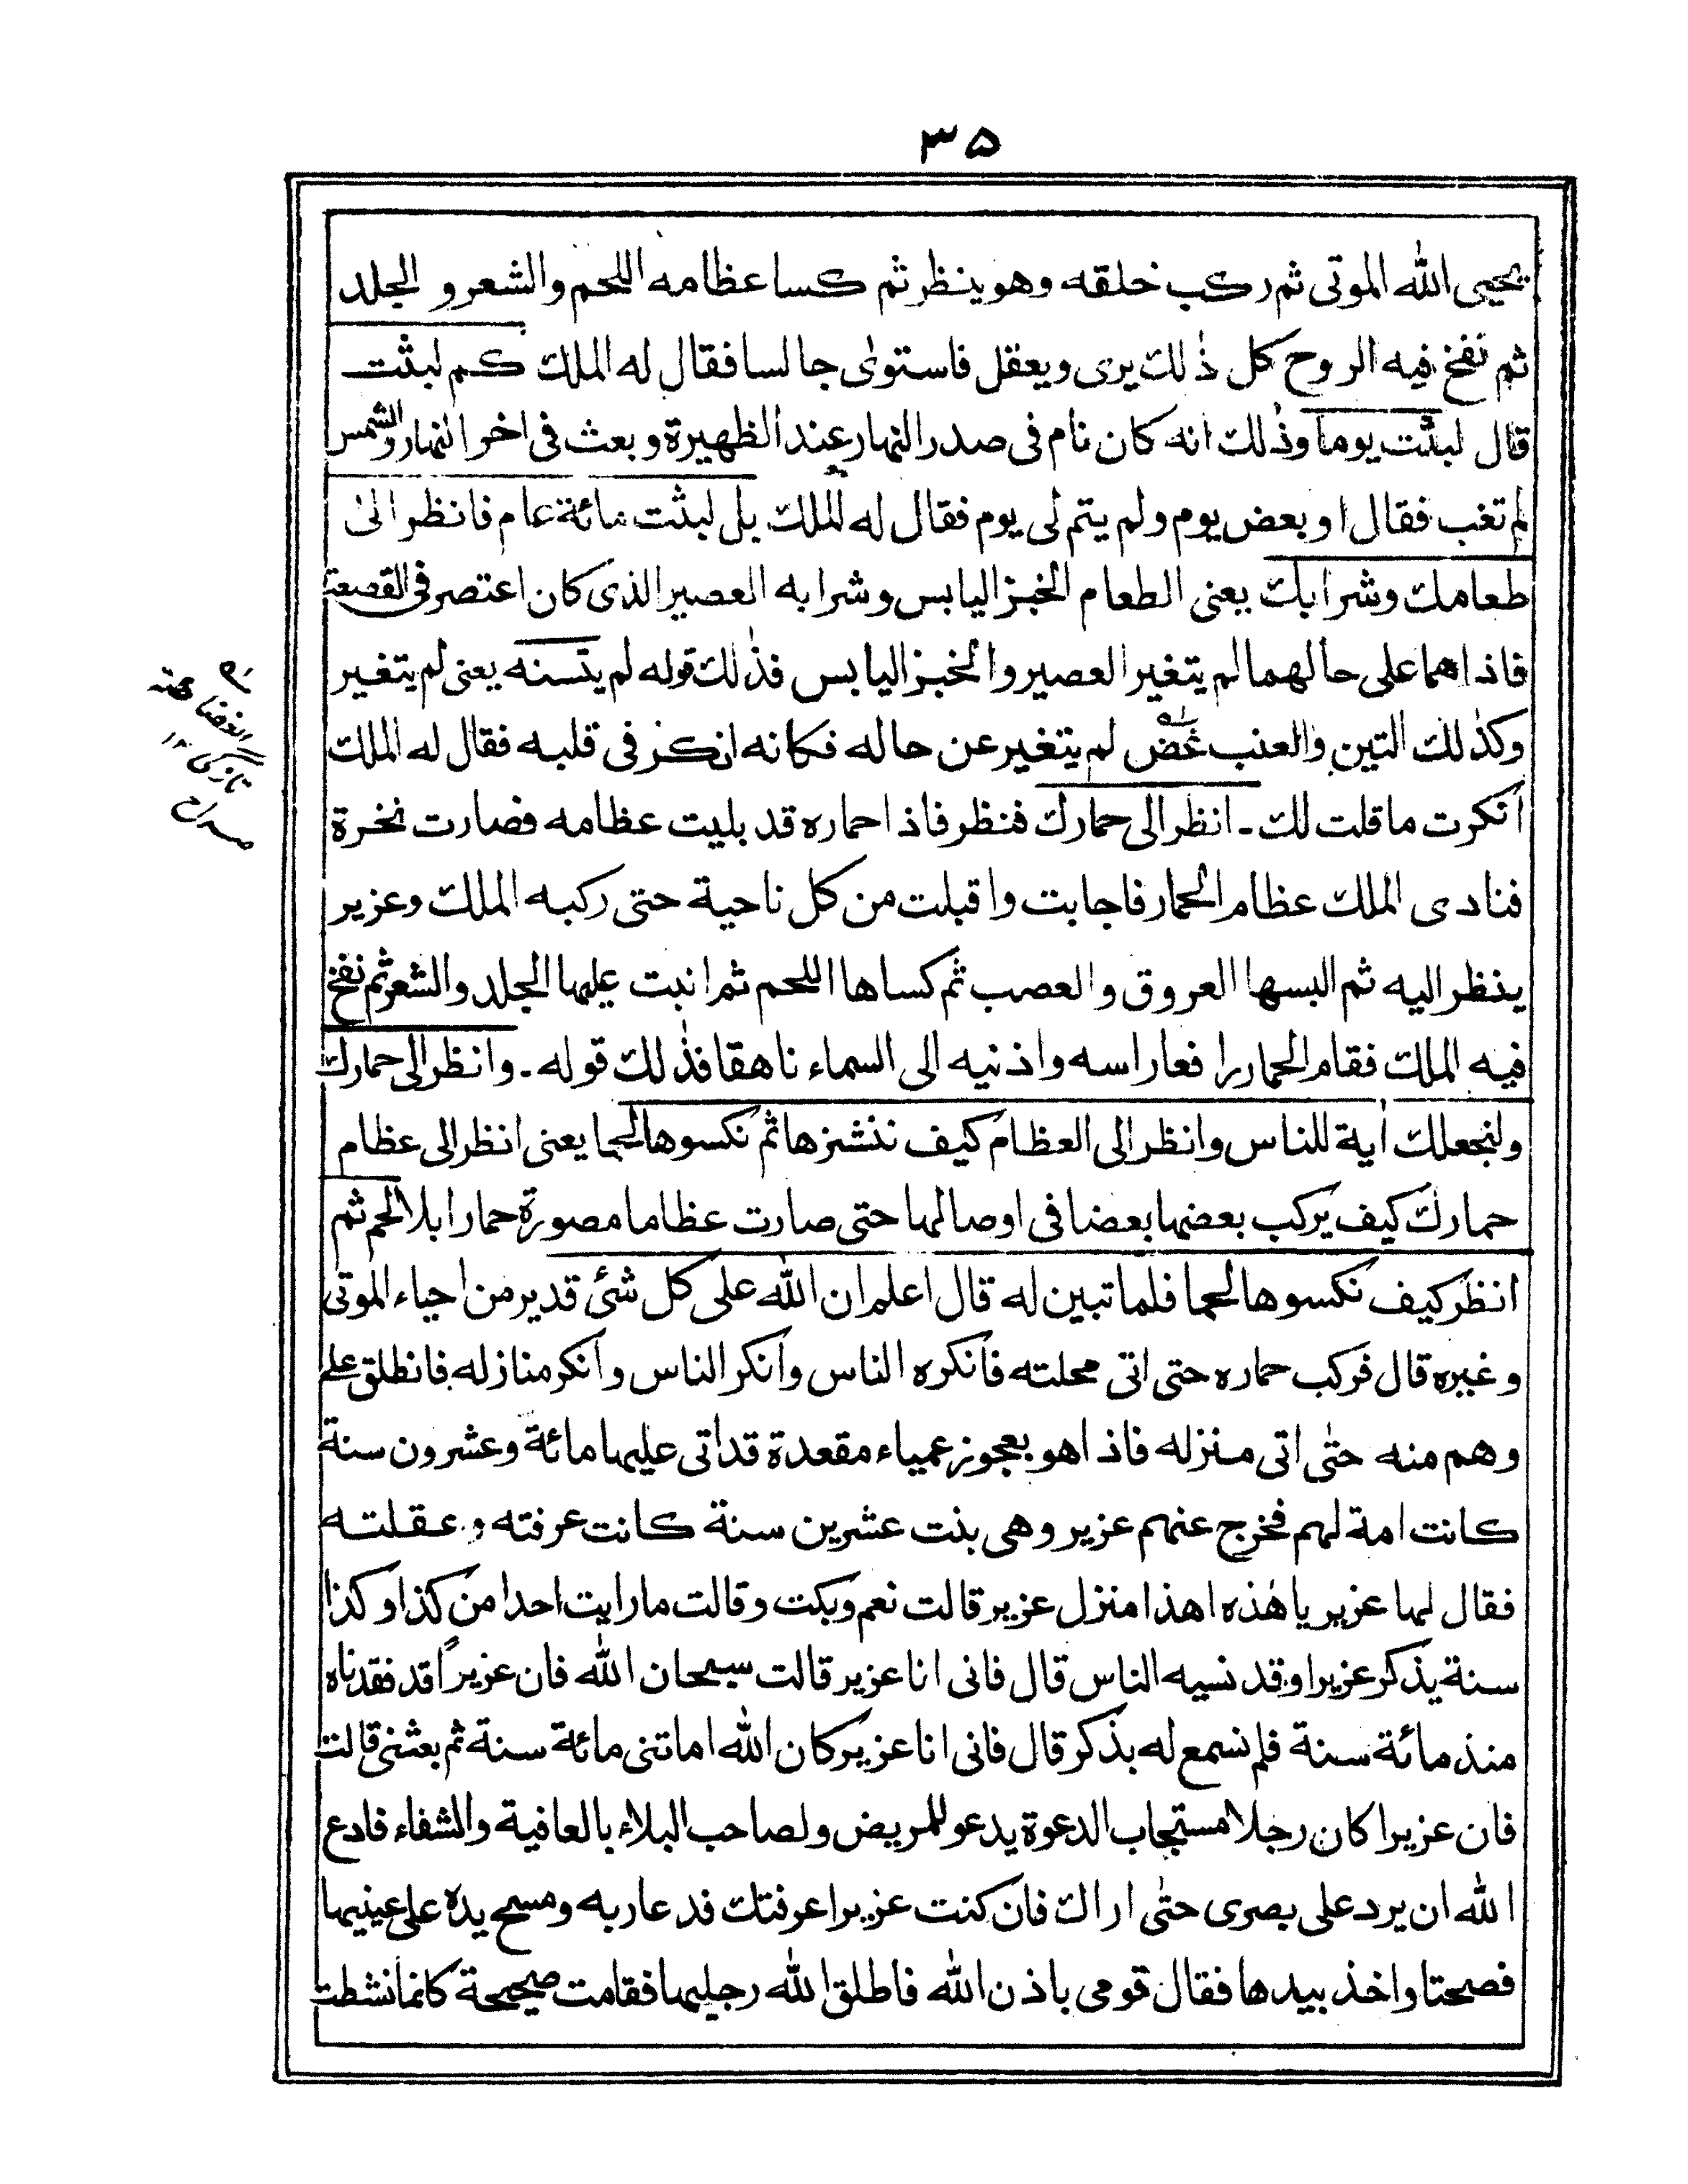 ۳۵
يحيى الله الموتى ثم ركب خلقه وهو ينظر ثم كسا عظامه اللحم والشعر و الجلد
ثم نفخ فيه الروح كل ذٰلك يرى ويعقل فاستوىٰ جالسا فقال له الملك كم لبثت
قال لبثت يوما وذٰلك انه كان نام فى صدر النهار عند الظهيرة وبعث فى اخر النهار والشمس
لم تغب فقال او بعض يوم ولم يتم لى يوم فقال له الملك بل لبثت مائة عام فانظر الىٰ
طعامك وشرابك يعنى الطعام الخبز اليابس وشرابه العصير الذى كان اعتصر فى القصعة
فاذاهما على حالهما لم يتغير العصير والخبز اليابس فذٰلك قوله لم يتسنه يعنى لم يتغير
وكذٰلك التين والعنب غض لم يتغير عن حاله فكانه انكر فى قلبه فقال له الملك
أنكرت ما قلت لك ـ انظر الى حمارك فنظر فاذا حماره قد بليت عظامه فصارت نخرة
فنادى الملك عظام الحمار فاجابت واقبلت من كل ناحية حتى ركبه الملك وعزير
ينظر اليه ثم البسها العروق والعصب ثم كساها اللحم ثم انبت عليها الجلد والشعر ثم نفخ
فيه الملك فقام الحمار را فعا راسه واذنيه الى السماء ناهقا فذٰلك قوله ـ وانظر الى حمارك
ولنجعلك اٰية للناس وانظر الى العظام كيف ننشزها ثم نكسوها لحما يعنى انظر الى عظام
حمارك كيف يركب بعضها بعضا فى اوصالها حتى صارت عظاما مصورة حمارا بلا لحم ثم
انظر كيف نكسوها لحما فلما تبين له قال اعلم ان الله على كل شئ قدير من احياء الموتى
وغيره قال فركب حماره حتى اتى محلته فأنكره الناس وأنكر الناس وأنكر منازله فانطلق على
وهم منه حتٰى اتى منزله فاذا هو بعجوز عمياء مقعدة قد اتى عليها مائة وعشرون سنة
كانت امة لهم فخرج عنهم عزير وهى بنت عشرين سنة كانت عرفته و عقلته
فقال لها عزير يا هٰذه اهذا منزل عزير قالت نعم وبكت وقالت ما رايت احدا من كذا وكذا
سنة يذكر عزيرا وقد نسيه الناس قال فانى انا عزير قالت سبحان الله فان عزيراً قد فقدناه
منذ مائة سنة فلم نسمع له بذكر قال فانى انا عزير كان الله اماتنى مائة سنة ثم بعثنى قالت
فان عزيرا كان رجلا مستجاب الدعوة يدعو للمريض ولصاحب البلاء بالعافية والشفاء فادع
الله ان يرد على بصرى حتٰى اراك فان كنت عزيرا عرفتك فدعا ربه ومسح يده على عينيها
فصحتا واخذ بيدها فقال قومى باذن الله فاطلق الله رجليها فقامت صحيحة كانما نشطت
تازگى ۱۲
صراح